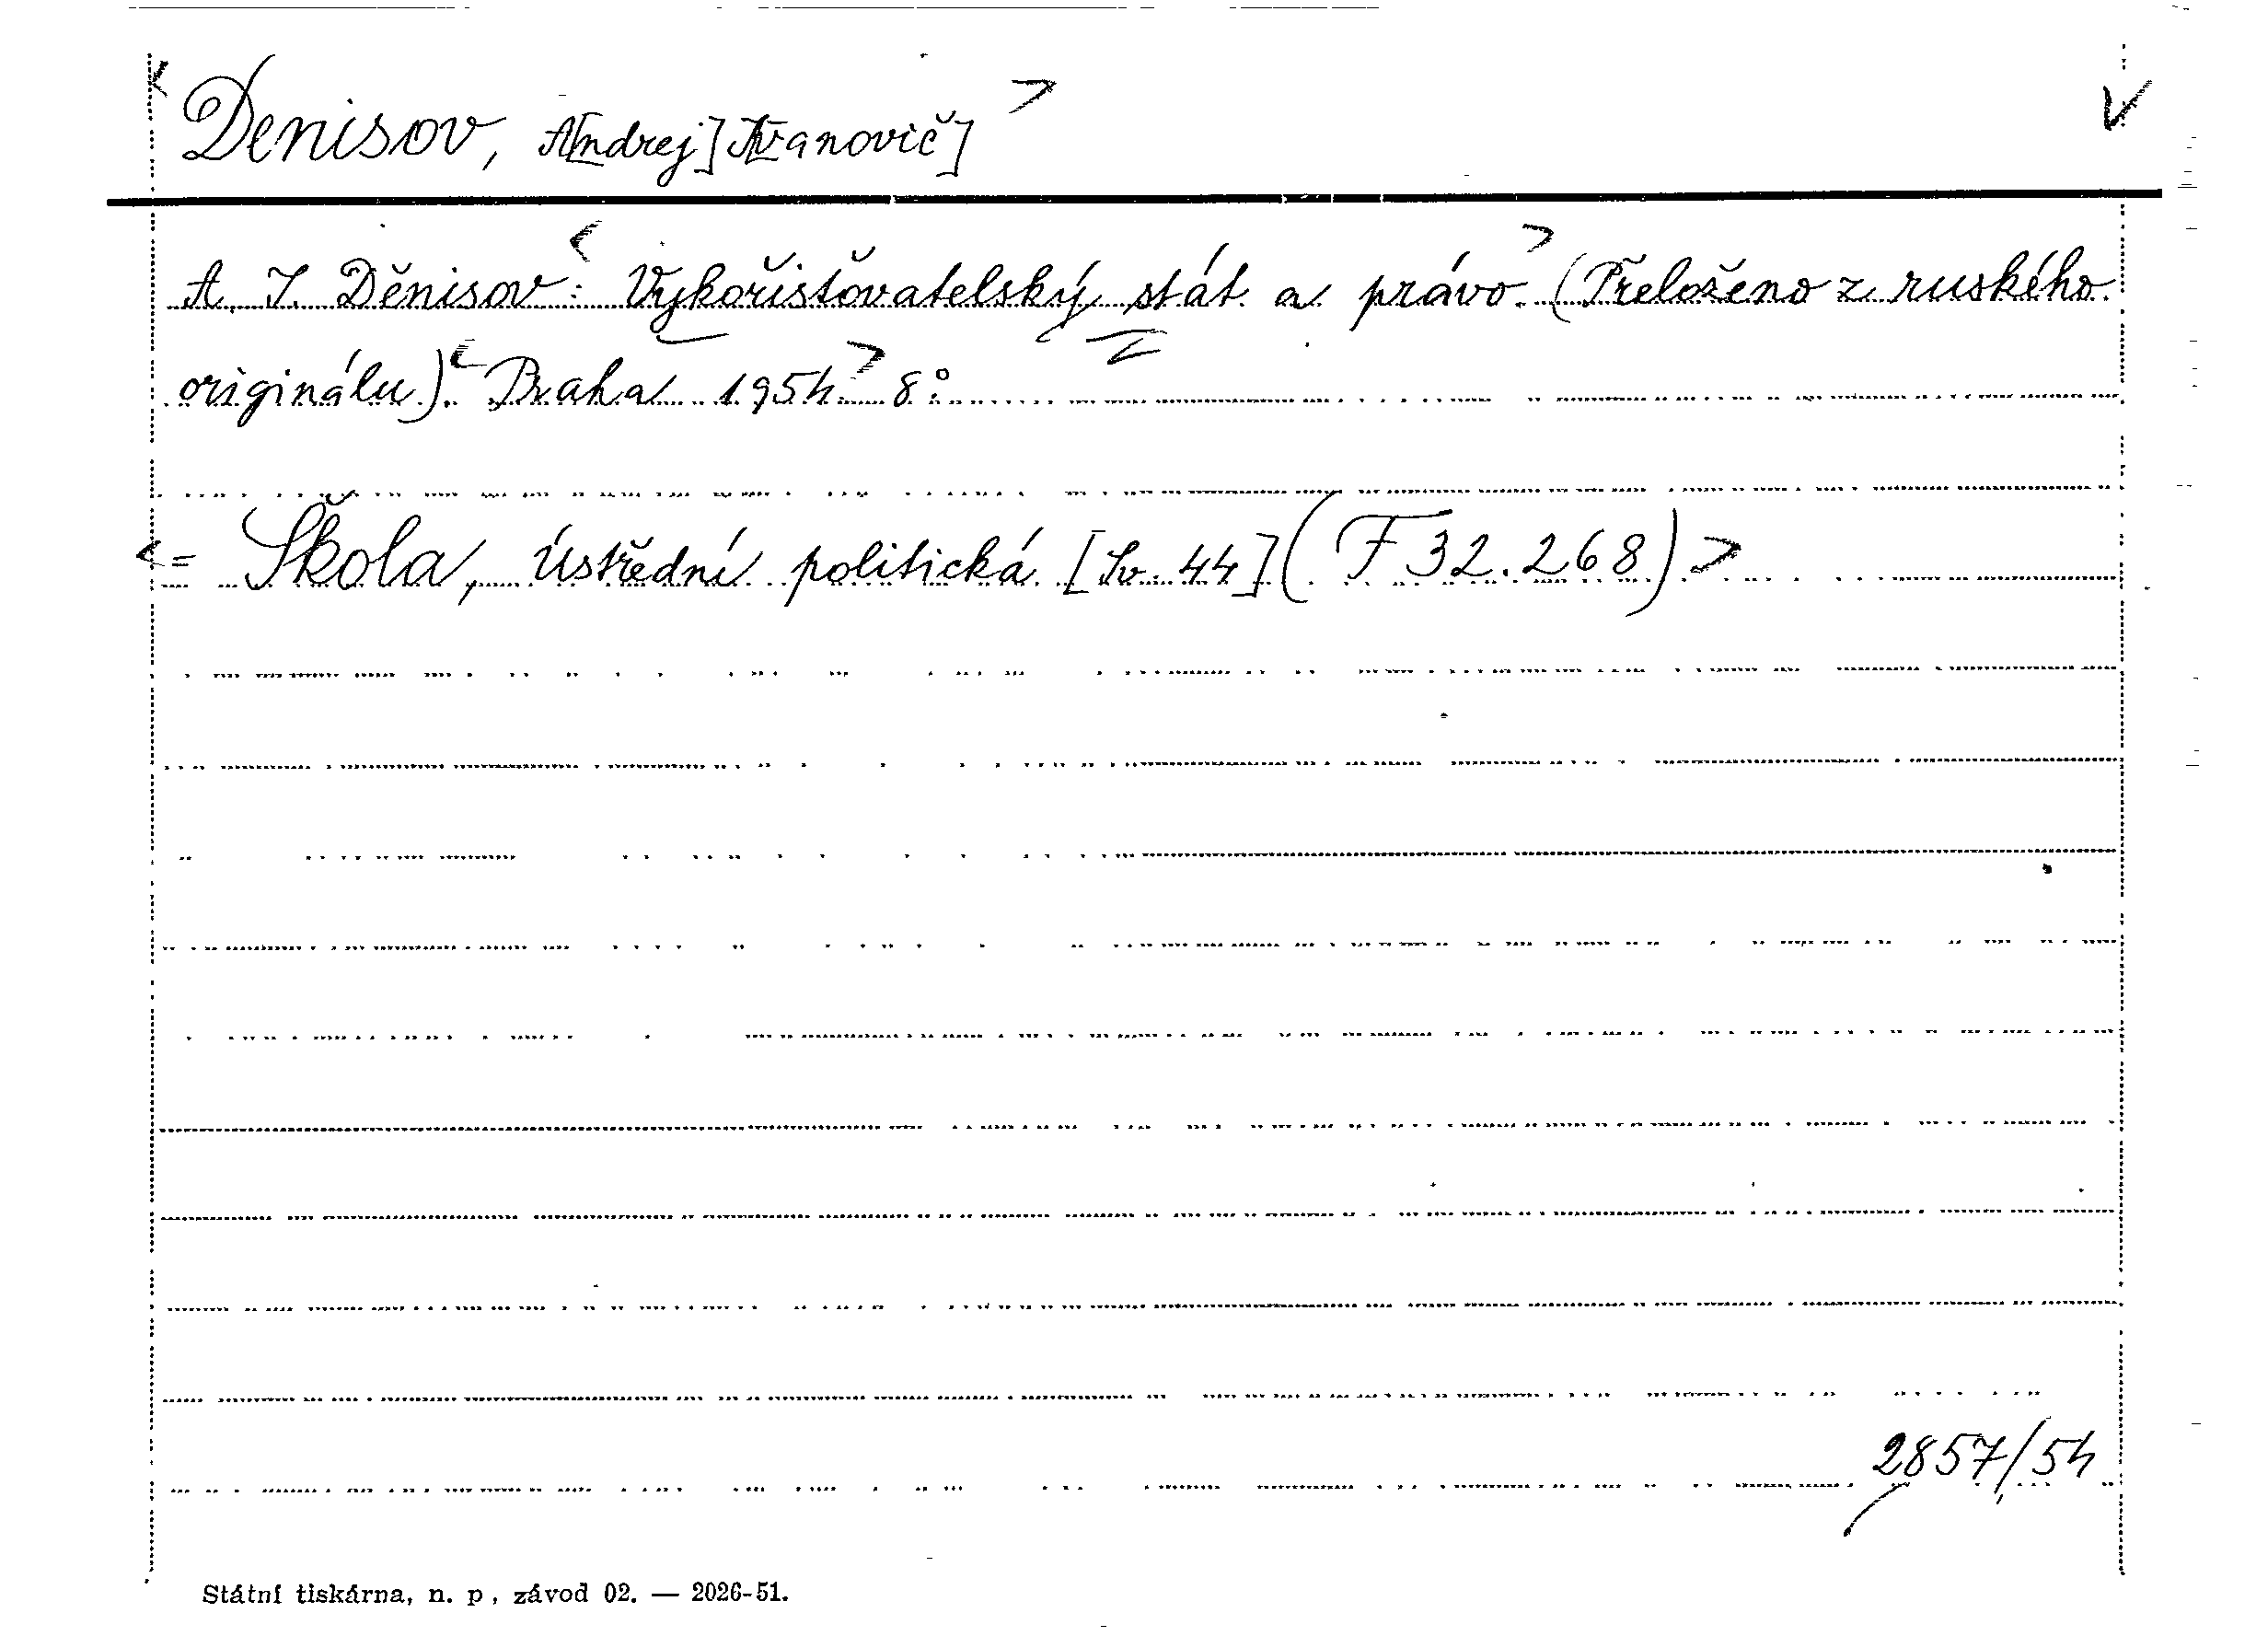 < Denisov, A[ndrej] I[vanovič] > V
A. I. Děnisov: < Vykořisťovatelský stát a právo. > (Přeloženo z ruského
originálu). < Praha 1954. > 8°.
< = Škola, ústřední politická [Sv. 44] (F 32.268) >
2857/54
Státní tiskárna, n. p., závod 02. — 2026-51.